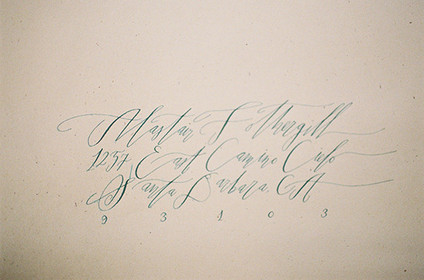 Alastair Fothergill
1257 East Camino Cielo
Santa Barbara, CA
9 3 1 0 3